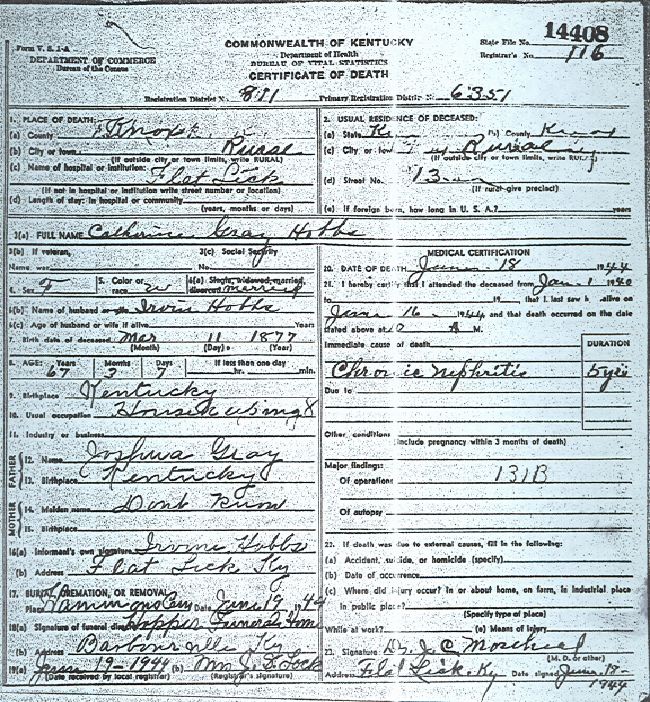 14408
Form V. S. 1-A
DEPARTMENT OF COMMERCE
Bureau of the Census
COMMONWEALTH OF KENTUCKY
Department of Health
BUREAU OF VITAL STATISTICS
CERTIFICATE OF DEATH
State File No.
Registrar's No. 116
Registration District No. 811 Primary Registration District No. 6351
1. PLACE OF DEATH:
(a) County Knox
(b) City or town Rural
(If outside city or town limits, write RURAL)
(c) Name of hospital or institution:
Flat Lick
(If not in hospital or institution write street number or location)
(d) Length of stay: In hospital or community
(years, months or days)
2. USUAL RESIDENCE OF DECEASED:
(a) State Ken (b) County Knox
(c) City or town Rural
(If outside city or town limits, write RURAL)
(d) Street No. 13
(If rural give precinct)
(e) If foreign born, how long in U. S. A.? years
3(a) FULL NAME Catherine Gray Hobbs
3(b) If veteran,
Name war
3(c) Social Security
No.
4. Sex F 5. Color or race W 6(a) Single, widowed, married, divorced married
6(b) Name of husband or wife Irvin Hobbs
6(c) Age of husband or wife if alive Years
7. Birth date of deceased Mar 11 1877
(Month) (Day) (Year)
8. AGE: Years Months Days If less than one day
67 3 7 hr. min.
9. Birthplace Kentucky
10. Usual occupation
11. Industry or business
FATHER
12. Name Joshua Gray
13. Birthplace Kentucky
MOTHER
14. Maiden name Dont Know
15. Birthplace
16(a) Informant's own signature Irvine Hobbs
(b) Address Flat Lick Ky
17. BURIAL, CREMATION, OR REMOVAL
Place Cem Date June 19 1944
18(a) Signature of funeral director Hopper Funeral Home
(b) Address Barbourville Ky
19(a) June 19-1944 (b) Mrs
(Date received by local registrar) (Registrar's signature)
MEDICAL CERTIFICATION
20. DATE OF DEATH June 18 1944
21. I hereby certify that I attended the deceased from Jan 1 1940
to 19 , that I last saw h alive on
June 16 1944 and that death occurred on the date
stated above at A M.
Immediate cause of death
DURATION
Chronic Nephritis 5 yrs
Due to
Other conditions
(Include pregnancy within 3 months of death)
Major findings:
Of operations 131B
Of autopsy
22. If death was due to external causes, fill in the following:
(a) Accident, suicide, or homicide (specify)
(b) Date of occurrence
(c) Where did injury occur? In or about home, on farm, in industrial place
in public place?
(Specify type of place)
While at work? (e) Means of injury
23. Signature Dr. J C
(M. D. or other)
Address Flat Lick Ky Date signed June 18-
1944